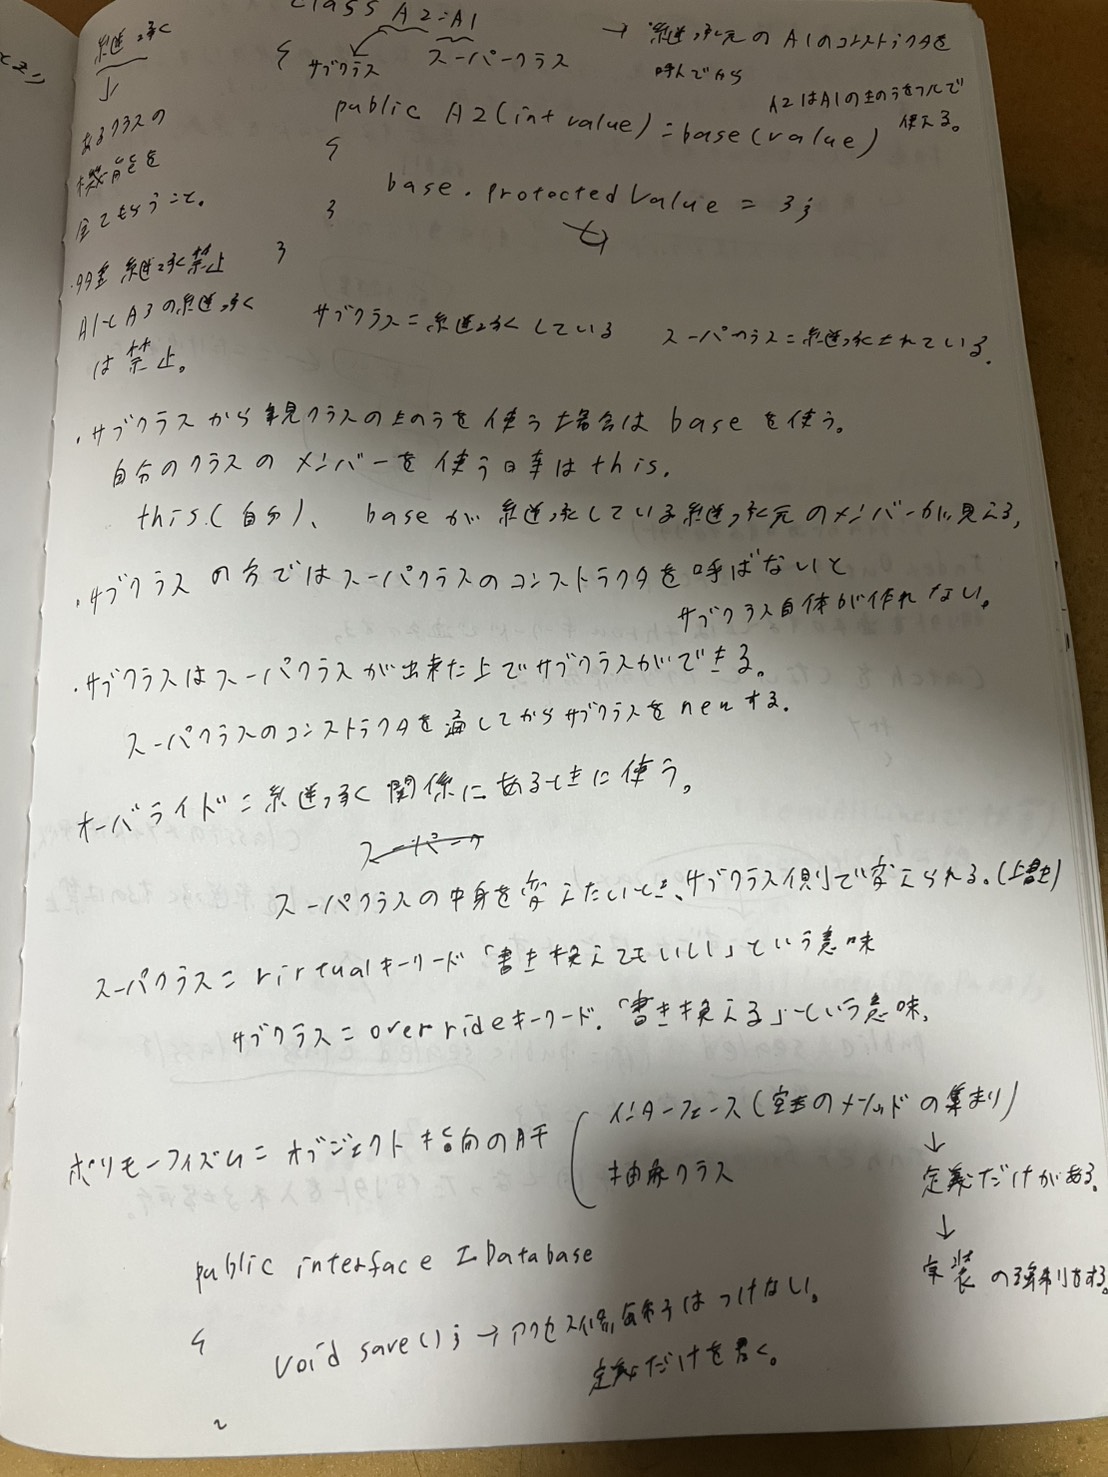 継承
↓
あるクラスの
機能を
全てもらうこと。
継承禁止
A1とA3の継承
は禁止。
class A2:A1
{ サブクラス スーパークラス
→ 継承元のA1のコンストラクタを
呼んでから
A2はA1のものをフルで
使える。
public A2(int value):base(value)
{
base.protectedValue = 3;
}
}
サブクラス=継承している スーパクラス=継承されている.
・サブクラスから親クラスのものを使う場合はbaseを使う。
自分のクラスのメンバーを使う時はthis.
this.(自分)、 baseが継承している継承元のメンバーが見える,
・サブクラスの方ではスーパクラスのコンストラクタを呼ばないと
サブクラス自体が作れない。
・サブクラスはスーパクラスが出来た上でサブクラスができる。
スーパクラスのコンストラクタを通してからサブクラスをnewする.
オーバライド=継承関係にあるときに使う。
スーパーク
スーパクラスの中身を変えたいとき、サブクラス側で変えられる。(上書き)
スーパクラス=virtualキーワード「書き換えてもいい」という意味
サブクラス=overrideキーワード.「書き換える」という意味,
ポリモーフィズム=オブジェクト指向の肝
インターフェース(空きのメソッドの集まり)
抽象クラス
↓
定義だけがある.
↓
実装の強制をする.
public interface IDatabase
{
void save(); → アクセス修飾子はつけない。
定義だけを書く。